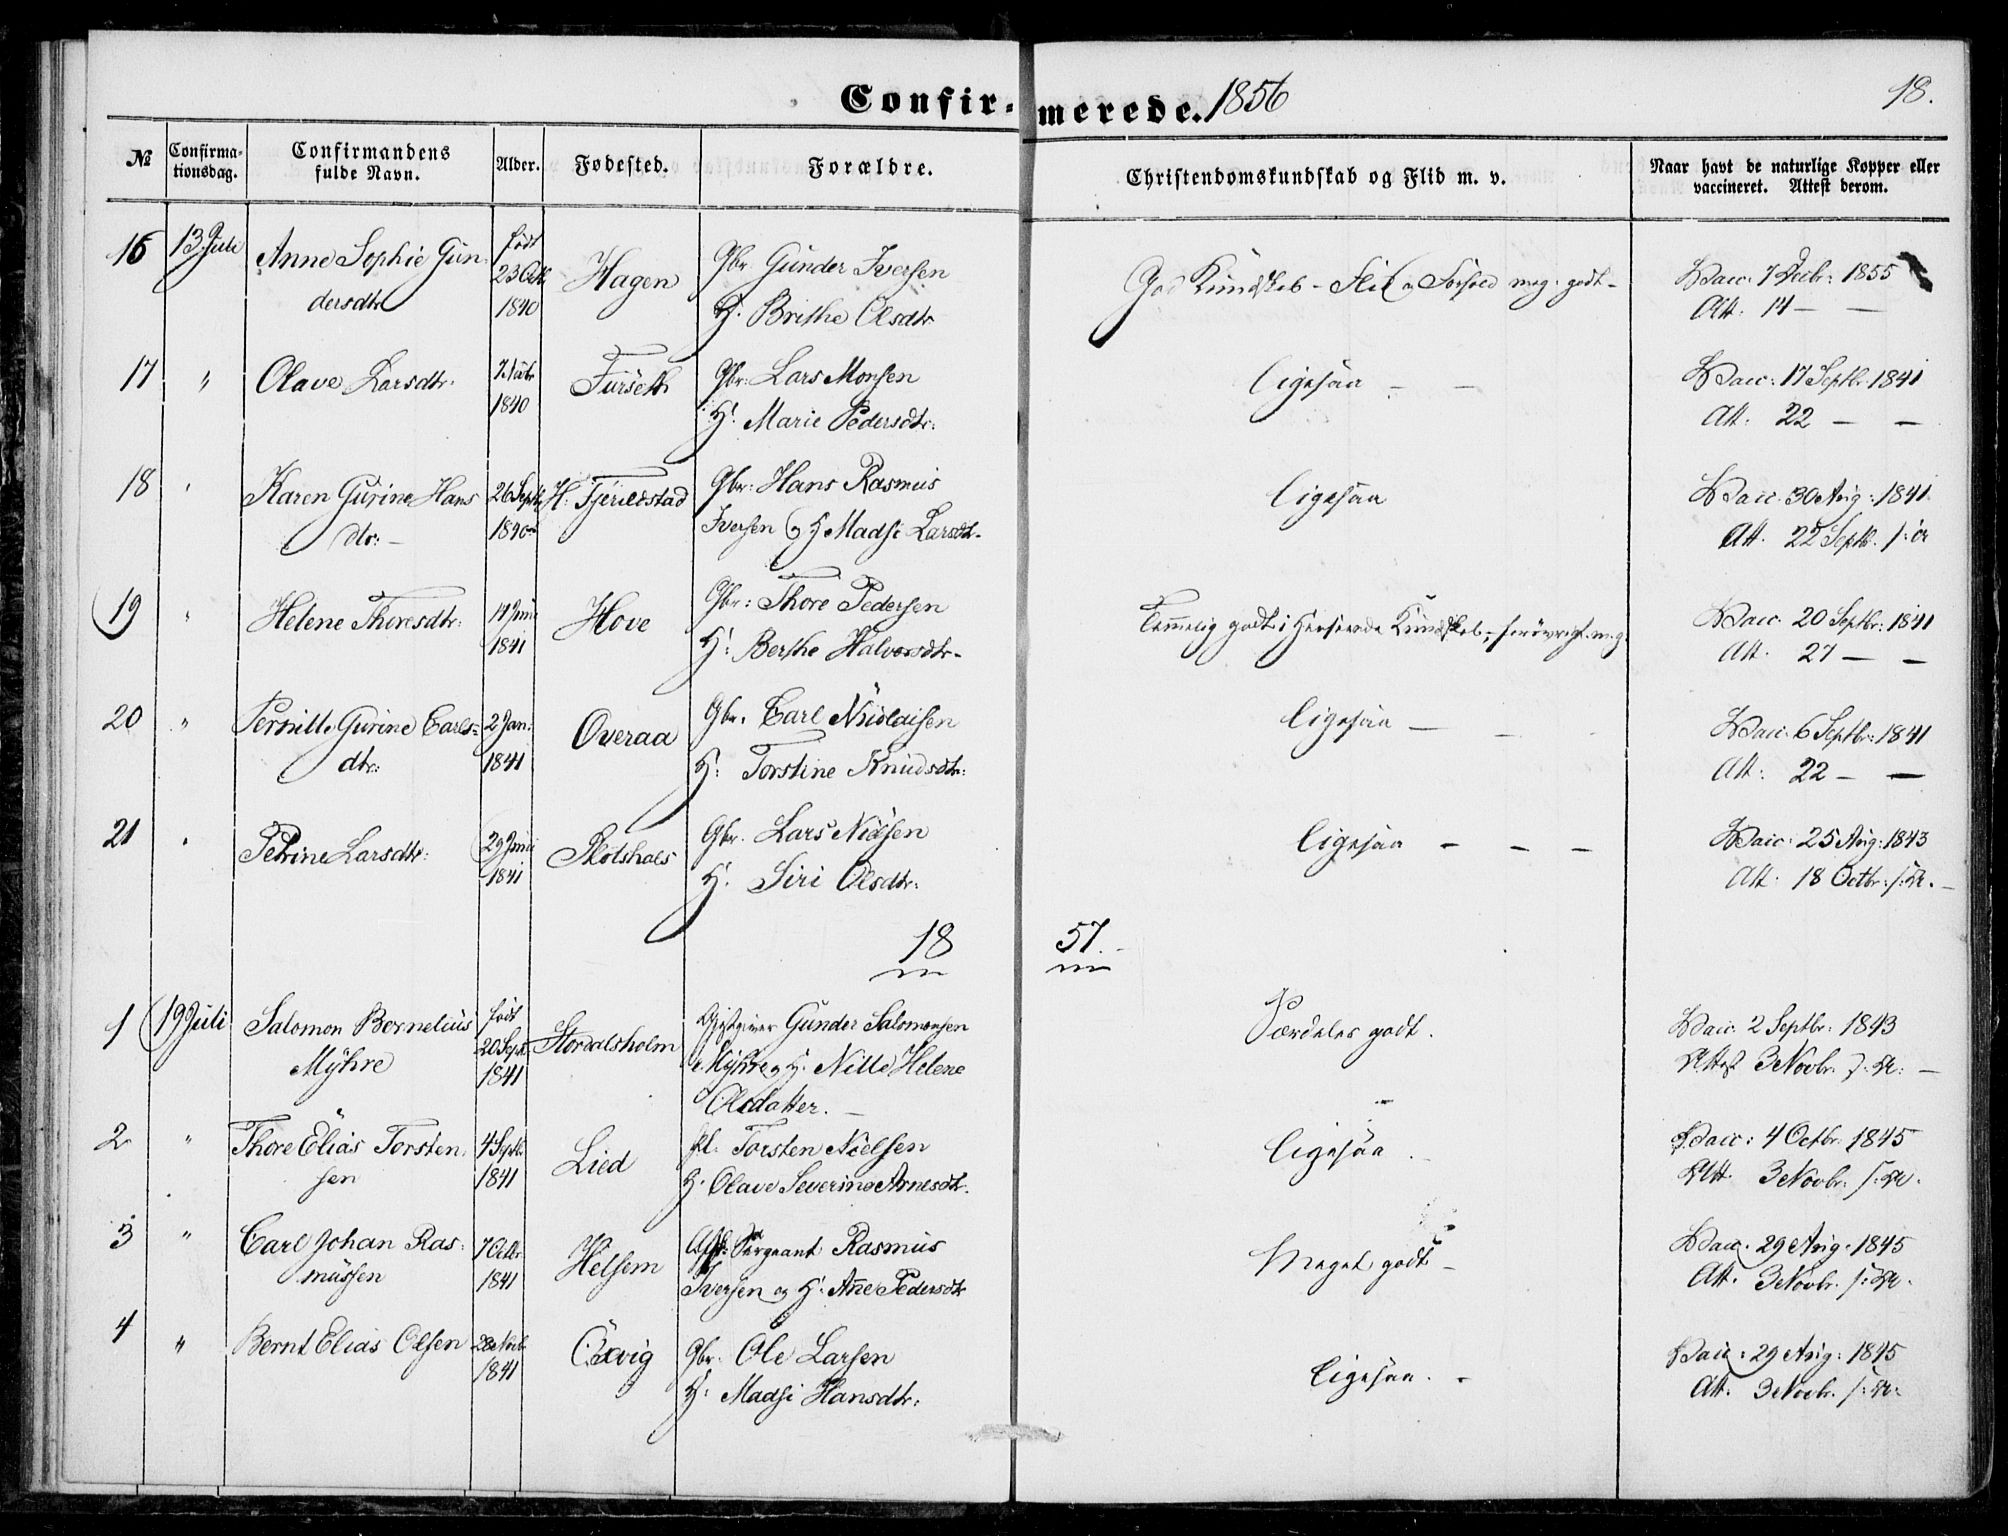 Confirmerede. 1856
18.
№
Confirmationsdag.
Confirmandens fulde Navn.
Alder.
Fødested.
Forældre.
Christendomskundskab og Flid m. v.
Naar havt de naturlige Kopper eller vaccineret. Attest derom.
16 13 Juli Anne Sophie Gun- født 23 Octb Hagen Gbr Gunder Iversen God Kundskab – Flid og Forhold meg: godt – Vacc: 7 Decbr: 1855
dersdtr 1840 H. Brithe Olsdtr Att: 14 — —
17 " Olave Larsdtr: 7 Fürseth Gbr: Lars Monsen Ligesaa — — Vacc: 17 Septbr: 1841
1840 H. Marie Pedersdtr: Att: 22 — —
18 " Karen Gurine Hans 26 Septb H. Tjerildstad Gbr: Hans Rasmus Ligesaa Vacc. 30 Aug: 1841
dtr: – 1840 Iversen og H Madsi Larsdtr. Att. 22 Septb.
19 " Helene Thoresdtr: Juni Hove Gbr: Thore Pedersen Temmelig godt i Henseende Kundskab, – forövrigt meg Vacc. 20 Septbr: 1841
1841 H: Berthe Halvorsdtr. Att. 27 — —
20 " Pernille Gurine Carls- 2 Jan: Överaa Gbr. Carl Nicolaisen Ligesaa — Vacc. 6 Septbr: 1841
dtr: 1841 H: Torstine Knudsdtr: Att: 22 — —
21 " Petrine Larsdtr: 29 Juni Skotshals Gbr. Lars Nielsen Ligesaa — — — Vacc: 25 Aug: 1843
1841 H. Siri Olsdtr: Att: 18 Octbr:
18 57.
1 19 Juli Salomon Bernelius født 20 Sept. Stordalsholm Gjestgiver Gunder Salomonsen Særdeles godt. Vacc. 2 Septbr: 1843
Myhre 1841 Myhre og H. Nille Helene Attest 3 Novbr.
Olsdatter. —
2 " Thore Elias Torsten- 4 Septb. Lied Torsten Nielsen Ligesaa. Vacc: 4 Octbr: 1845
sen 1841 H. Olave Severine Arnesdtr. Att. 3 Novbr.
3 " Carl Johan Ras- 7 Octbr Helsem Afsk: Sergeant Rasmus Meget godt – Vacc. 29 Aug. 1845
mussen 1841 Iversen og H. Anne Pedersdtr Att. 3 Novbr.
4 " Bernt Elias Olsen 28 Novb Öxvig Gbr. Ole Larsen Ligesaa. – Vacc: 29 Aug: 1845
1841 H: Madsi Hansdtr: Att. 3 Novbr.